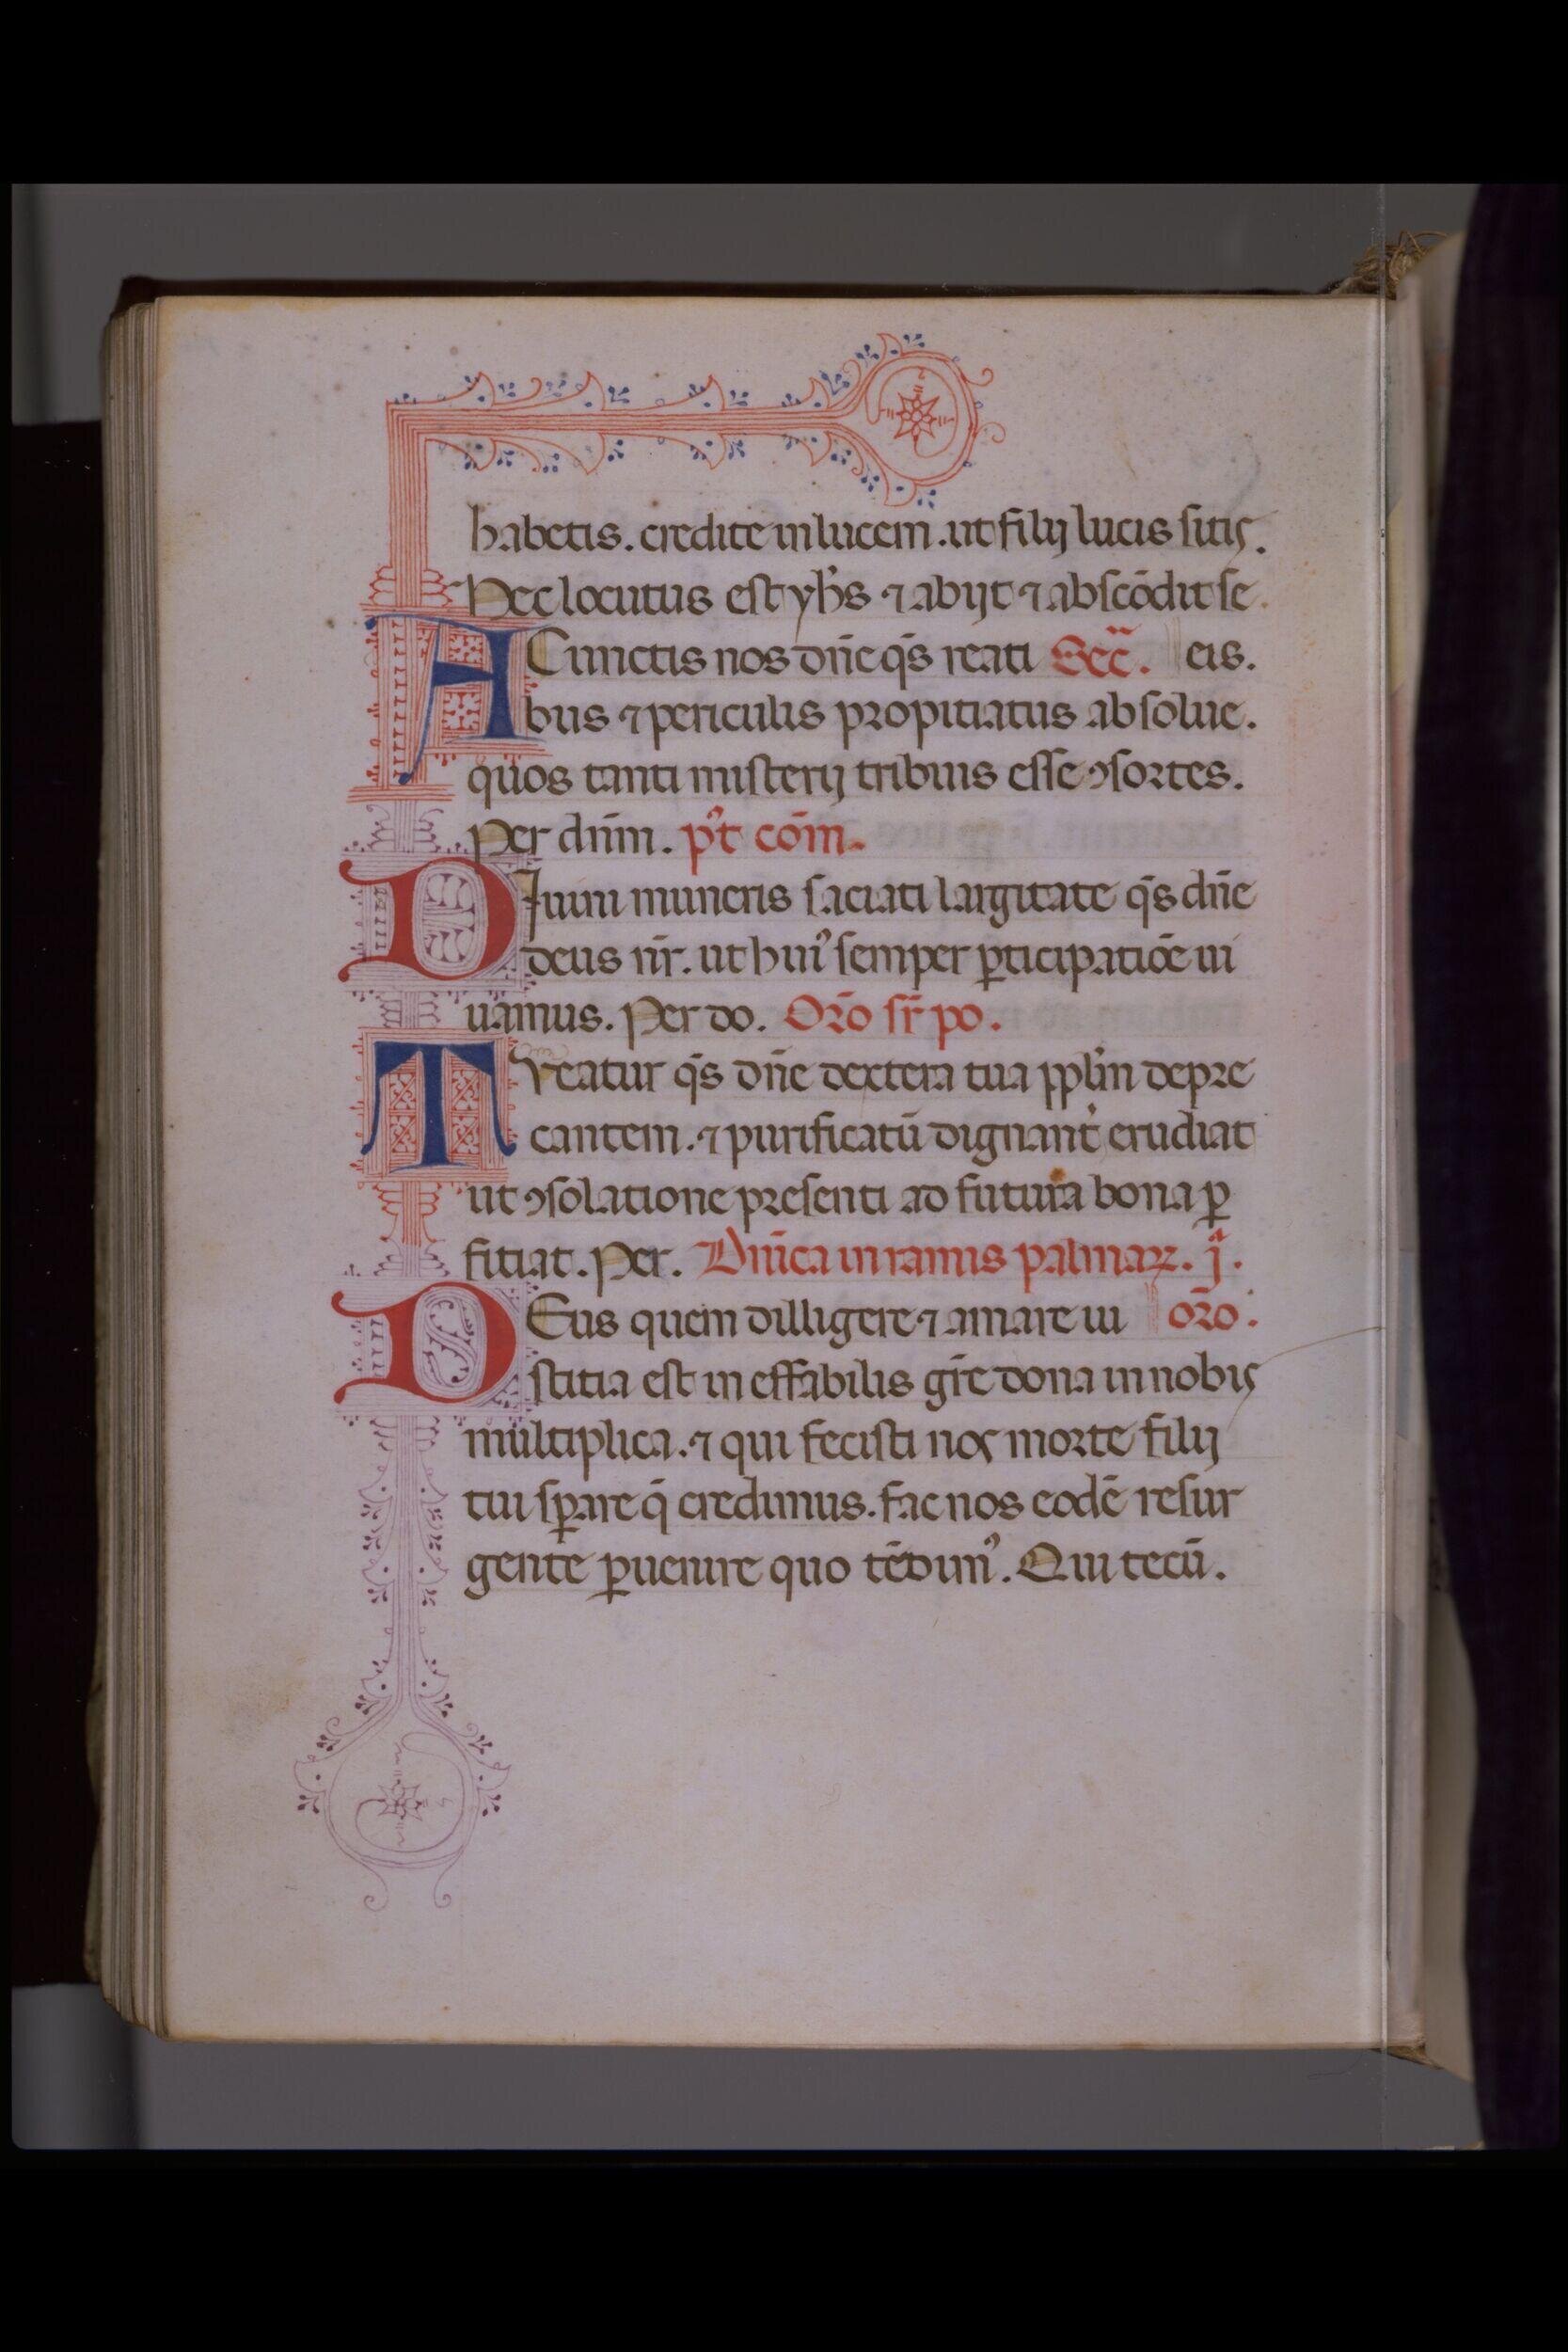 habetis. credite in lucem. ut filij lucis sitis.
Hec locutus est yh̅s ⁊ abijt ⁊ abscōdit se.
A Cunctis nos dn̄e q̄s reati Sēc. eis.
bus ⁊ periculis propitiatus absolue.
quos tanti misterij tribuis esse ꝯsortes.
Per dn̄m. p᷒t cōm.
DIuini muneris saciati largitate q̄s dn̄e
deus nr̄. ut huiꝰ semper ꝑticipatiōe ui
uamus. Per do. Orō sr̄ po.
TVeatur q̄s dn̄e dextera tua pp̄lm depre
cantem. ⁊ purificatū dignant̉ erudiat
ut ꝯsolatione presenti ad futura bona ꝑ
fitiat. Per. Dn̄ica in ramis palmaꝝ. j.
DEus quem dilligere ⁊ amare iu orō.
stitia est in effabilis gr̄e dona in nobis
multiplica. ⁊ qui fecisti nos morte filij
tui sꝑare q̄ credimus. fac nos eodē resur
gente ꝑuenire quo tēdimꝰ. Qui tecū.